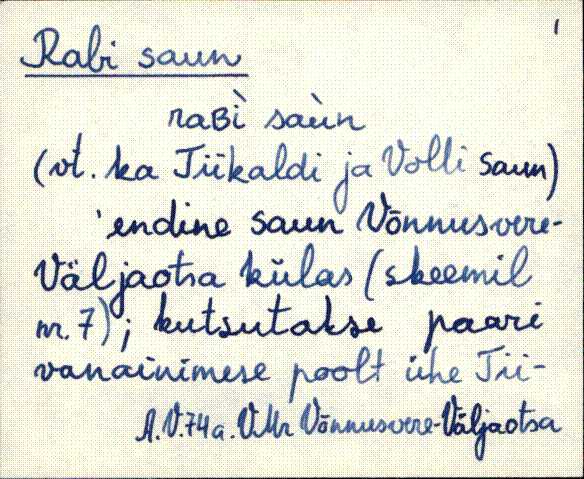 1
Rabi saun
raʙì saùn
(vt. ka Tiikaldi ja Volli saun)
'endine saun Võnnusvere-
Väljaotsa külas (skeemil
nr. 7); kutsutakse paari
vanainimese poolt ühe Tii-
A.V. 74 a. VMr Võnnusvere-Väljaotsa